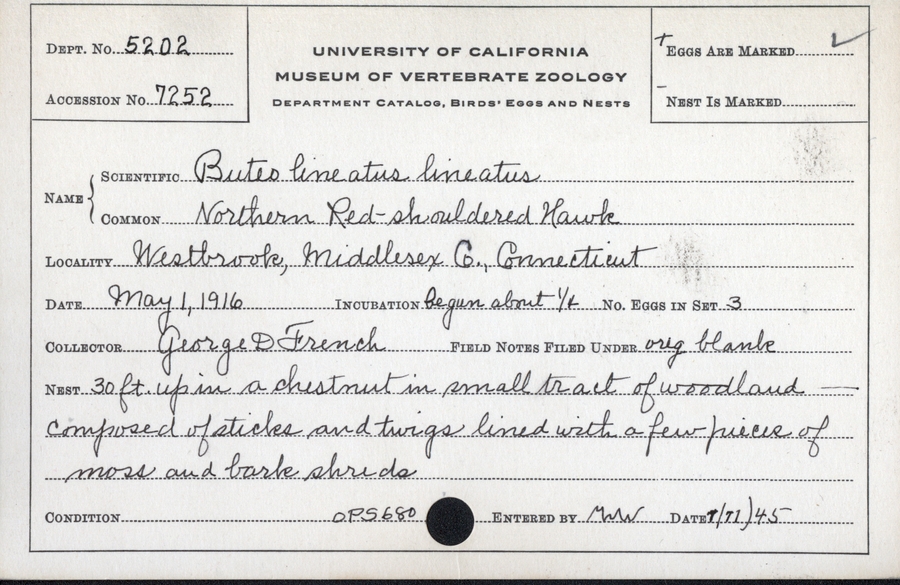 DEPT. No. 5202
ACCESSION No. 7252
UNIVERSITY OF CALIFORNIA
MUSEUM OF VERTEBRATE ZOOLOGY
DEPARTMENT CATALOG, BIRDS' EGGS AND NESTS
+ EGGS ARE MARKED ✓
- NEST IS MARKED
NAME { SCIENTIFIC Buteo lineatus lineatus
COMMON Northern Red-shouldered Hawk
LOCALITY Westbrook, Middlesex Co., Connecticut
DATE May 1, 1916 INCUBATION begun about 1/4 No. EGGS IN SET 3
COLLECTOR George D French FIELD NOTES FILED UNDER orig blank
NEST 30 ft. up in a chestnut in small tract of woodland —
composed of sticks and twigs lined with a few pieces of
moss and bark shreds
CONDITION OPS680 ENTERED BY DATE